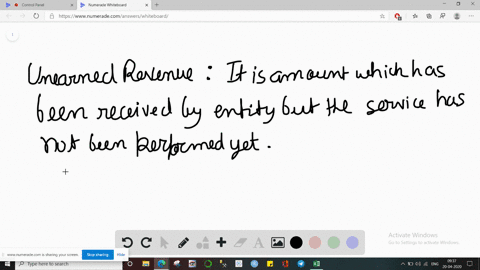 Control Panel
Numerade Whiteboard
https://www.numerade.com/answers/whiteboard/
Unearned Revenue : It is amount which has
been received by entity but the service has
not been performed yet.
Activate Windows
Go to Settings to activate Windows.
www.numerade.com is sharing your screen. Stop sharing Hide
Type here to search
ENG